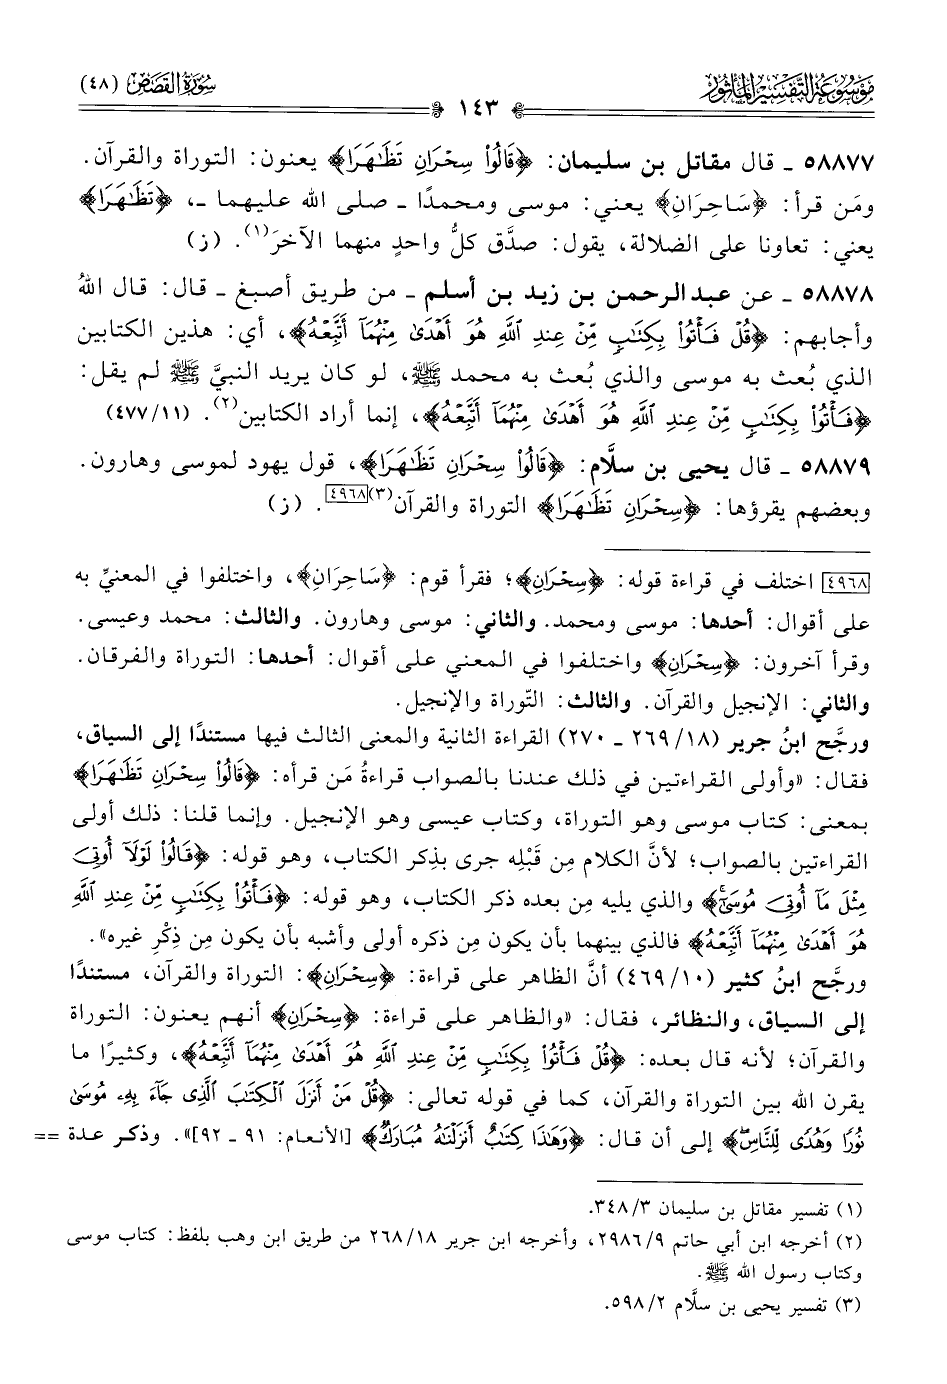 مَوْسُوعَة التَّفْسِيرِ المَأْثُور
١٤٣
سُورَةُ القَصَص (٤٨)
٥٨٨٧٧ ـ قال مقاتل بن سليمان: ﴿قَالُوا۟ سِحْرَانِ تَظَـٰهَرَا﴾ يعنون: التوراة والقرآن.
ومَن قرأ: ﴿سَاحِرَانِ﴾ يعني: موسى ومحمدًا ـ صلى الله عليهما ـ، ﴿تَظَـٰهَرَا﴾
يعني: تعاونا على الضلالة، يقول: صدَّق كلُّ واحدٍ منهما الآخرَ(١). (ز)
٥٨٨٧٨ ـ عن عبدالرحمن بن زيد بن أسلم ـ من طريق أصبغ ـ قال: قال اللهُ
وأجابهم: ﴿قُلْ فَأْتُوا۟ بِكِتَـٰبٍ مِّنْ عِندِ ٱللَّهِ هُوَ أَهْدَىٰ مِنْهُمَآ أَتَّبِعْهُ﴾، أي: هذين الكتابين
الذي بُعث به موسى والذي بُعث به محمد ﷺ، لو كان يريد النبيَّ ﷺ لم يقل:
﴿فَأْتُوا۟ بِكِتَـٰبٍ مِّنْ عِندِ ٱللَّهِ هُوَ أَهْدَىٰ مِنْهُمَآ أَتَّبِعْهُ﴾، إنما أراد الكتابين(٢). (١١/٤٧٧)
٥٨٨٧٩ ـ قال يحيى بن سلَّام: ﴿قَالُوا۟ سِحْرَانِ تَظَـٰهَرَا﴾، قول يهود لموسى وهارون.
وبعضهم يقرؤها: ﴿سِحْرَانِ تَظَـٰهَرَا﴾ التوراة والقرآن(٣)[٤٩٦٨]. (ز)
[٤٩٦٨] اختلف في قراءة قوله: ﴿سِحْرَانِ﴾؛ فقرأ قوم: ﴿سَاحِرَانِ﴾، واختلفوا في المعنيِّ به
على أقوال: أحدها: موسى ومحمد. والثاني: موسى وهارون. والثالث: محمد وعيسى.
وقرأ آخرون: ﴿سِحْرَانِ﴾ واختلفوا في المعني على أقوال: أحدها: التوراة والفرقان.
والثاني: الإنجيل والقرآن. والثالث: التّوراة والإنجيل.
ورجَّح ابنُ جرير (١٨/٢٦٩ ـ ٢٧٠) القراءة الثانية والمعنى الثالث فيها مستندًا إلى السياق،
فقال: «وأولى القراءتين في ذلك عندنا بالصواب قراءةُ مَن قرأه: ﴿قَالُوا۟ سِحْرَانِ تَظَـٰهَرَا﴾
بمعنى: كتاب موسى وهو التوراة، وكتاب عيسى وهو الإنجيل. وإنما قلنا: ذلك أولى
القراءتين بالصواب؛ لأنَّ الكلام مِن قَبْلِه جرى بذِكر الكتاب، وهو قوله: ﴿قَالُوا۟ لَوْلَآ أُوتِىَ
مِثْلَ مَآ أُوتِىَ مُوسَىٰٓ﴾ والذي يليه مِن بعده ذكر الكتاب، وهو قوله: ﴿فَأْتُوا۟ بِكِتَـٰبٍ مِّنْ عِندِ ٱللَّهِ
هُوَ أَهْدَىٰ مِنْهُمَآ أَتَّبِعْهُ﴾ فالذي بينهما بأن يكون مِن ذكره أولى وأشبه بأن يكون مِن ذِكْرِ غيره».
ورجَّح ابنُ كثير (١٠/٤٦٩) أنَّ الظاهر على قراءة: ﴿سِحْرَانِ﴾: التوراة والقرآن، مستندًا
إلى السياق، والنظائر، فقال: «والظاهر على قراءة: ﴿سِحْرَانِ﴾ أنهم يعنون: التوراة
والقرآن؛ لأنه قال بعده: ﴿قُلْ فَأْتُوا۟ بِكِتَـٰبٍ مِّنْ عِندِ ٱللَّهِ هُوَ أَهْدَىٰ مِنْهُمَآ أَتَّبِعْهُ﴾، وكثيرًا ما
يقرن الله بين التوراة والقرآن، كما في قوله تعالى: ﴿قُلْ مَنْ أَنزَلَ ٱلْكِتَـٰبَ ٱلَّذِى جَآءَ بِهِۦ مُوسَىٰ
نُورًا وَهُدًى لِّلنَّاسِ﴾ إلى أن قال: ﴿وَهَـٰذَا كِتَـٰبٌ أَنزَلْنَـٰهُ مُبَارَكٌ﴾ [الأنعام: ٩١ ـ ٩٢]». وذكر عدة ==
(١) تفسير مقاتل بن سليمان ٣/٣٤٨.
(٢) أخرجه ابن أبي حاتم ٩/٢٩٨٦، وأخرجه ابن جرير ١٨/٢٦٨ من طريق ابن وهب بلفظ: كتاب موسى
وكتاب رسول الله ﷺ.
(٣) تفسير يحيى بن سلَّام ٢/٥٩٨.